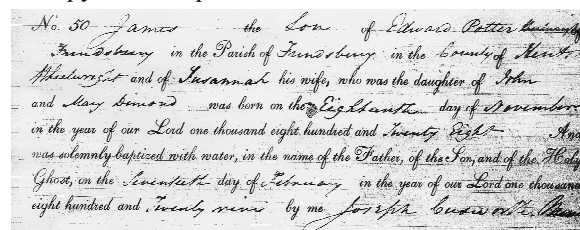 No. 50 James the Son of Edward Potter
Frindsbury in the Parish of Frindsbury in the County of Kent
Wheelwright and of Susannah his wife, who was the daughter of John
and Mary Dimond was born on the Eighteenth day of November
in the year of our Lord one thousand eight hundred and Twenty Eight And
was solemnly baptized with water, in the name of the Father, of the Son, and of the Holy
Ghost, on the day of February in the year of our Lord one thousand
eight hundred and Twenty nine by me Joseph Cusworth